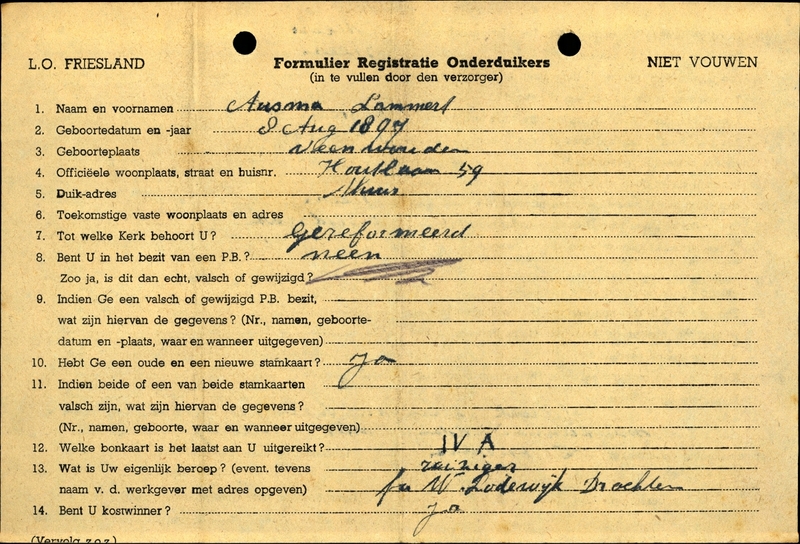 L.O. FRIESLAND
Formulier Registratie Onderduikers
NIET VOUWEN
(in te vullen door den verzorger)
1. Naam en voornamen Ausma Lammert
2. Geboortedatum en -jaar 8 Aug 1897
3. Geboorteplaats Veenwouden
4. Officiëele woonplaats, straat en huisnr. Houtlaan 59
5. Duik-adres
6. Toekomstige vaste woonplaats en adres
7. Tot welke Kerk behoort U? Gereformeerd
8. Bent U in het bezit van een P.B.? neen
Zoo ja, is dit dan echt, valsch of gewijzigd?
9. Indien Ge een valsch of gewijzigd P.B. bezit,
wat zijn hiervan de gegevens? (Nr., namen, geboorte-
datum en -plaats, waar en wanneer uitgegeven)
10. Hebt Ge een oude en een nieuwe stamkaart? Ja
11. Indien beide of een van beide stamkaarten
valsch zijn, wat zijn hiervan de gegevens?
(Nr., namen, geboorte, waar en wanneer uitgegeven)
12. Welke bonkaart is het laatst aan U uitgereikt? IV A
13. Wat is Uw eigenlijk beroep? (event. tevens reiniger
naam v. d. werkgever met adres opgeven) fa W. Lodewijk Drachten
14. Bent U kostwinner? Ja
(Vervolg z.o.z.)